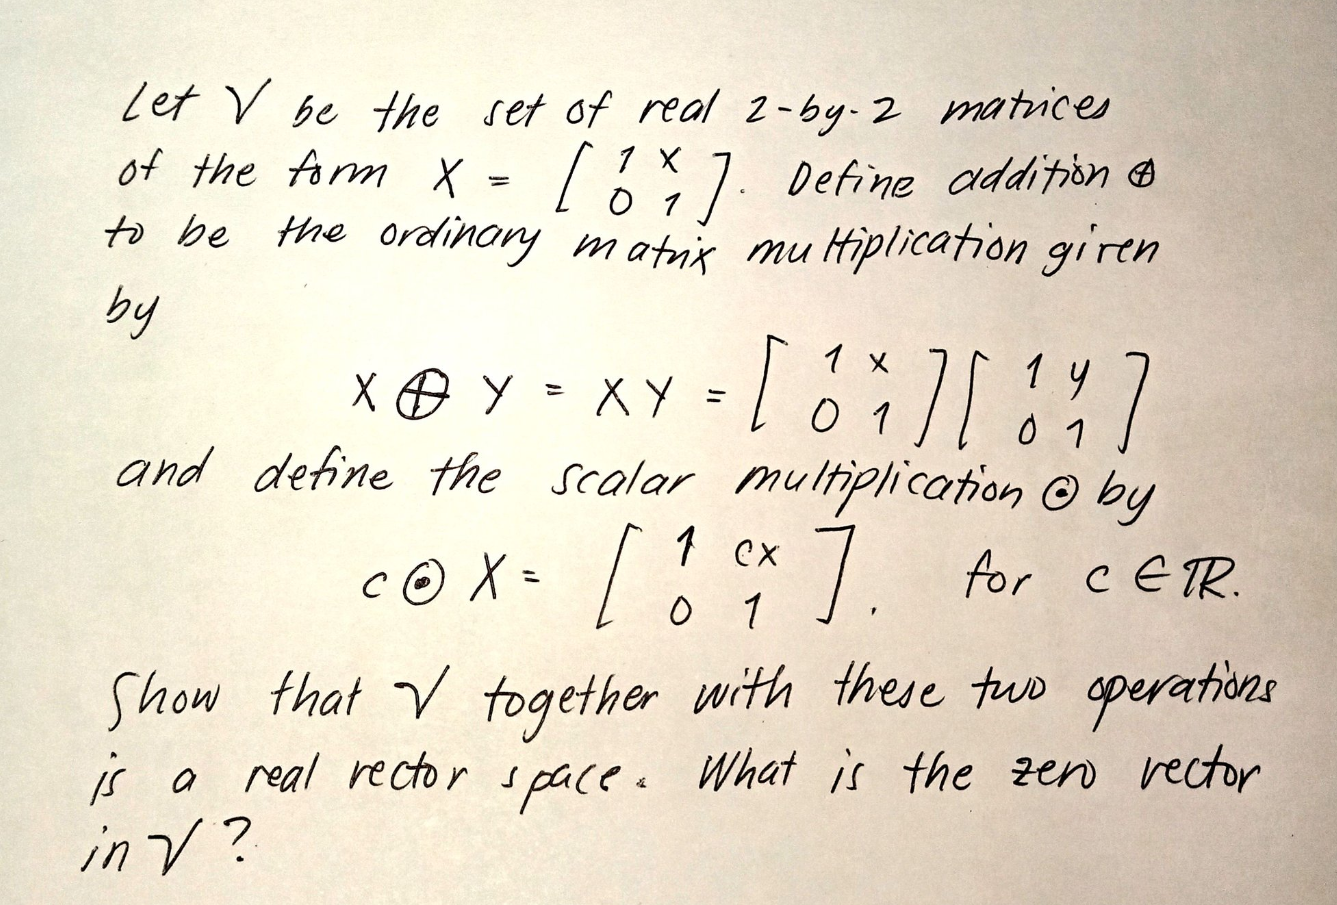 Let V be the set of real 2-by-2 matrices
of the form X = [ 1 x ; 0 1 ]. Define addition ⊕
to be the ordinary matrix multiplication given
by
X ⊕ Y = XY = [ 1 x ; 0 1 ][ 1 y ; 0 1 ]
and define the scalar multiplication ⊙ by
c ⊙ X = [ 1 cx ; 0 1 ], for c ∈ ℝ.
Show that V together with these two operations
is a real vector space. What is the zero vector
in V?